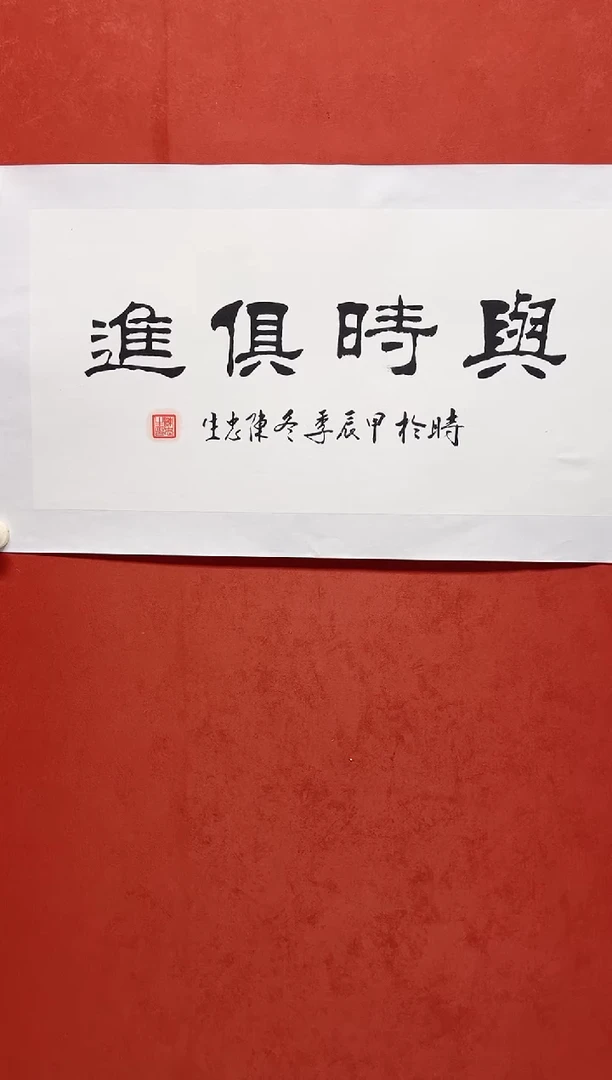 與時俱進
時於甲辰季冬陳忠生